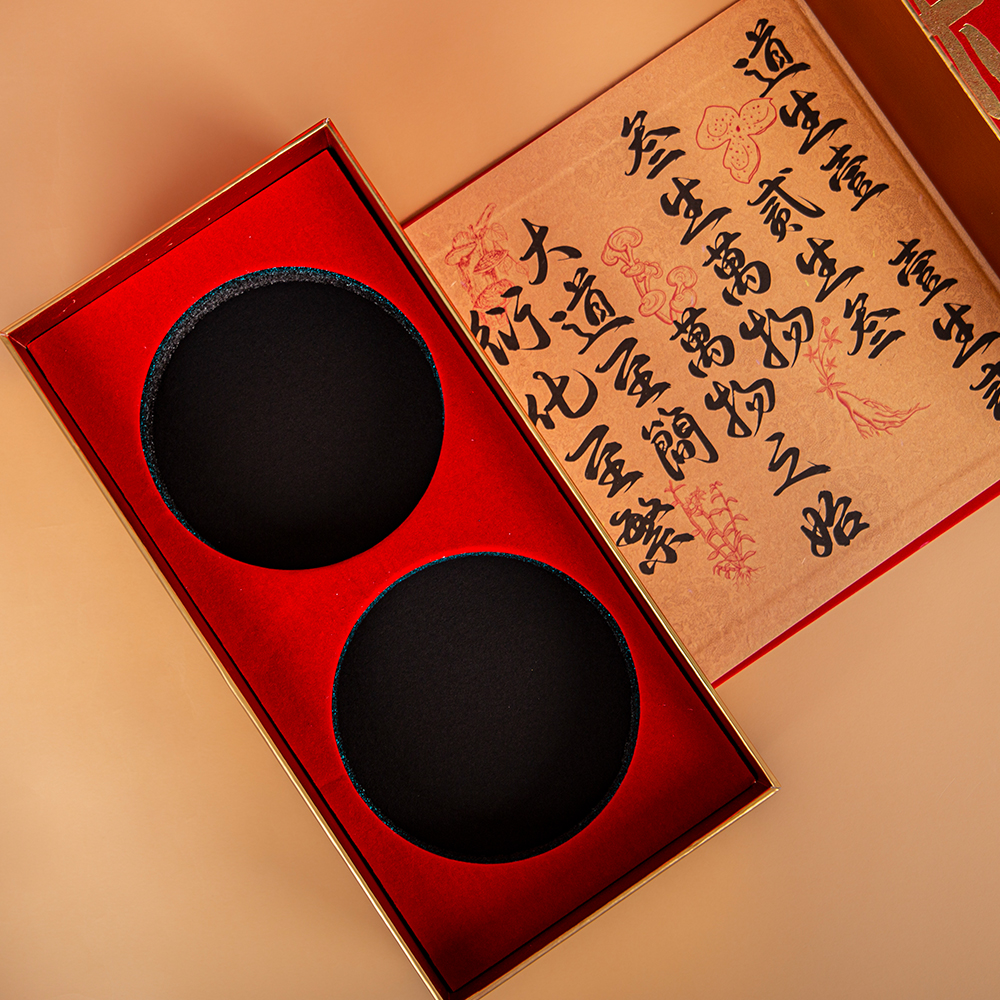 道生壹 壹生
贰生叁
叁生萬物
萬物之始
大道至簡
衍化至繁